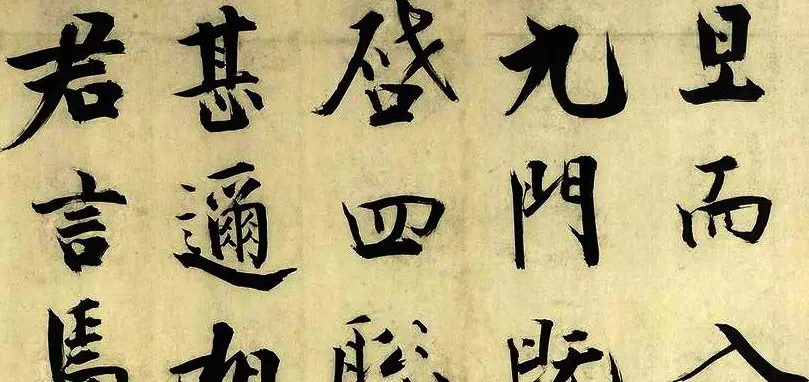 旦而入
九門既
啓四聰
甚邇相
君言焉